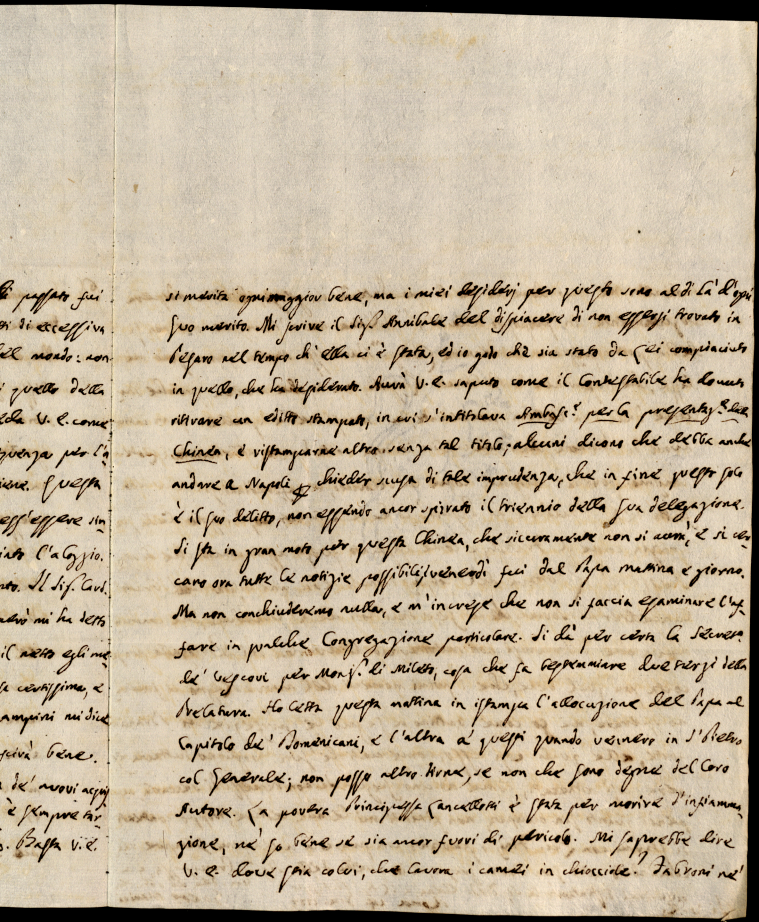 si merita ogni maggior bene, ma i miei desiderj per questo sono al di là d'ogni
suo merito. Mi scrive il Sig.r Annibale del dispiacere di non essersi trovato in
Pesaro nel tempo ch'ella ci è stata, ed io godo che sia stato da Lei compiaciuto
in quello, che ha desiderato. Avrà V. E. saputo come il Contestabile ha dovuto
ritirare un editto stampato, in cui s'intitolava Ambasc.r per la presentaz.e della
Chinea, e ristamparne altro senza tal titolo; alcuni dicono che debba anche
andare a Napoli p chieder scusa di tale imprudenza, che in fine questo solo
è il suo delitto, non essendo ancor spirato il triennio della sua delegazione.
Si sta in gran moto per questa Chinea, che sicuramente non si avrà, e si cer-
cano ora tutte le notizie possibili; venerdì fui dal Papa mattina e giorno.
Ma non conchiuderemo nulla, e m'incresce che non si faccia esaminare l'af-
fare in qualche Congregazione particolare. Si dà per certa la Secret.a
de' Vescovi per Mons.r di Mileto, cosa che fa bestemmiare due terzi della
Prelatura. Ho letta questa mattina in istampa l'allocuzione del Papa al
Capitolo de' Domenicani, e l'altra a' questi quando vennero in S. Pietro
col Generale; non posso altro dirne, se non che sono degne del loro
Autore. La povera Principessa Lancellotti è stata per morire d'infiamma-
zione, nè so bene se sia ancor fuori di pericolo. Mi saprebbe dire
V. E. dove stia colui, che lavora i camei in chiocciole? Fabroni nè
passato fui
ti di eccessiva
del mondo: non
quello della
V. E. come
per l'a
Questa
essere sin
l'aloggio.
Il Sig.r Card.
mi ha detto
il netto egli me
certissima, e
mi dice
bene.
de' nuovi acqui
è sempre
Basta V. E.